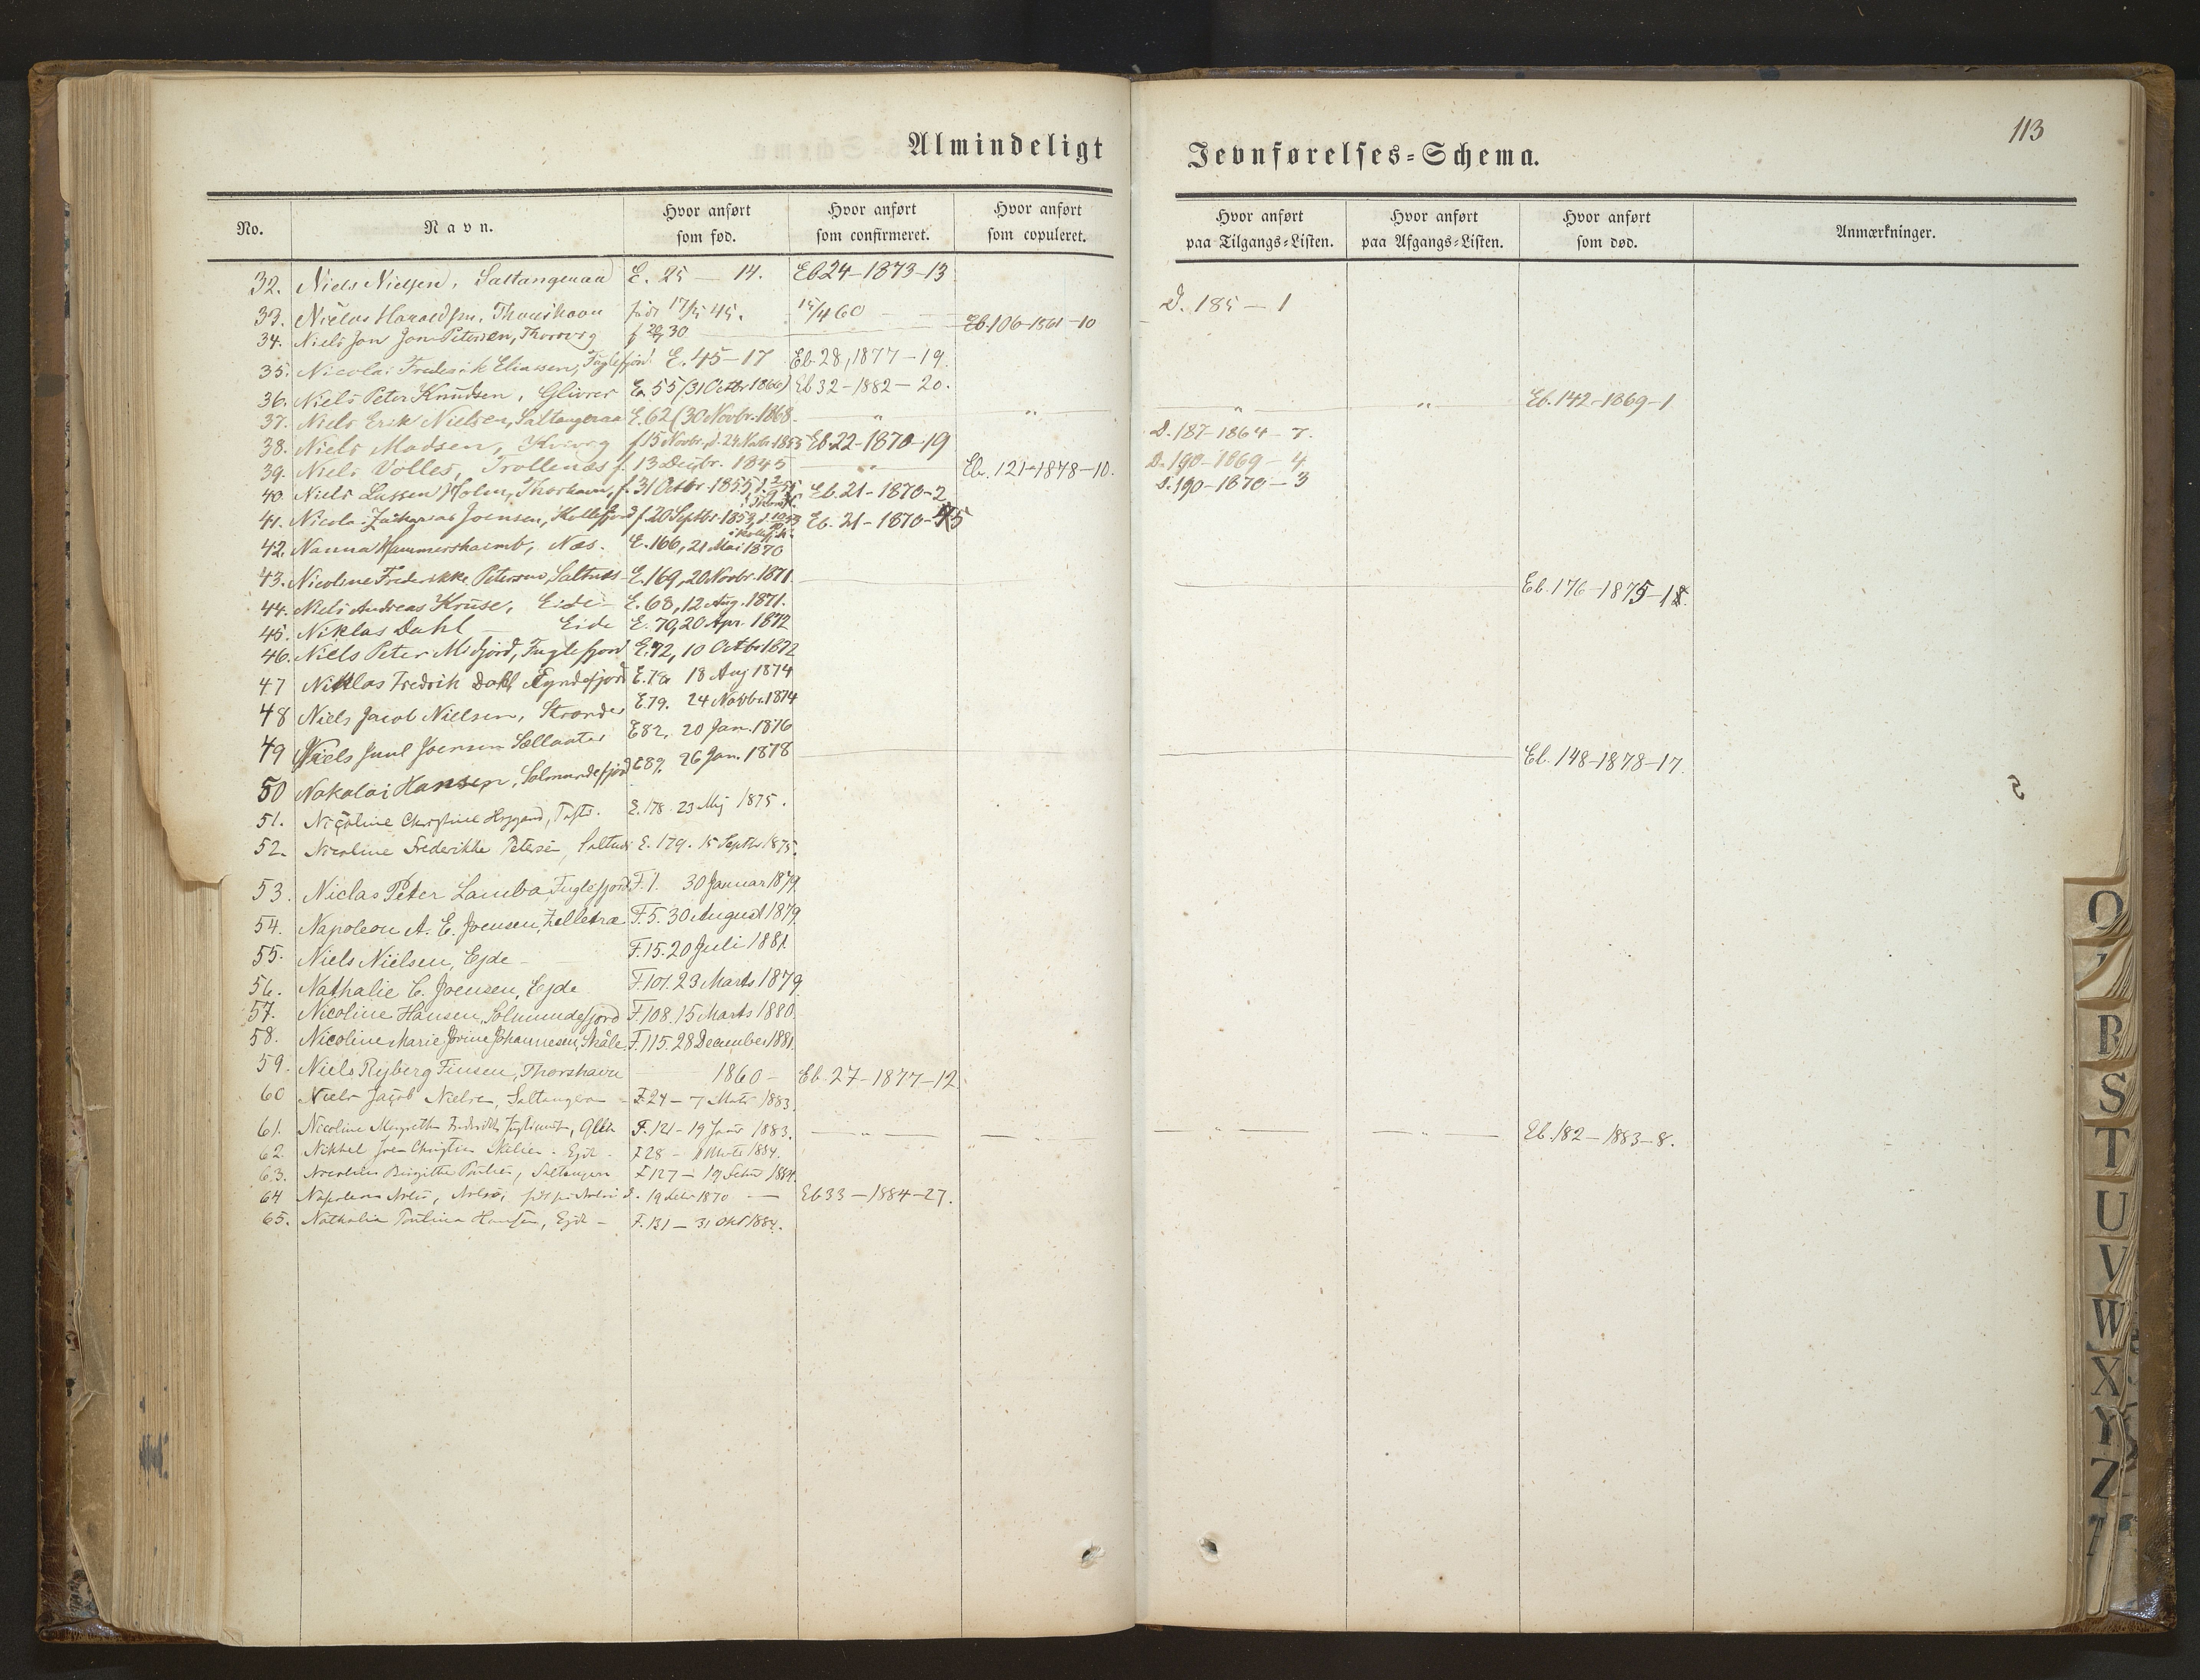 113
Almindeligt Jevnførelses-Schema.
No. Navn. Hvor anført som fød. Hvor anført som confirmeret. Hvor anført som copuleret. Hvor anført paa Tilgangs-Listen. Hvor anført paa Afgangs-Listen. Hvor anført som død. Anmærkninger.
32. Niels Nielsen, Saltangeraa E. 25 — 14. Eb 24-1873-13
33. Niclas Haraldsen, Thorshavn født 17/5 45. 15/4 60 D. 185 — 1
34. Niels Jon Jon Petersen, f 30 Eb. 106-1861-10
35. Nicolai Frederik Eliasen, Fuglefjord E. 45-17 Eb. 28, 1877-19.
36. Niels Peter Knudsen, Glivrer E. 55 (31 Octbr 1866) Eb 32-1882-20.
37. Niels Erik Nielsen, Saltangeraa E. 62 (30 Novbr. 1868. " " " " Eb. 142-1869-1
38. Niels Madsen, Kvivig f 15 Novbr. d. 24 Novbr. 1855 Eb. 22-1870-19 D. 187-1864-7.
39. Niels Volles, Trollenæs f. 13 Decbr. 1845 " Eb. 121-1878-10. D. 190-1869-4
40. Niels Lassen Holm, Thorshavn, f. 31 Octbr. 1855, Eb. 21-1870-2 D. 190-1870-3
41. Nicolai Zacharias Joensen, Kollefjord f. 20 Septbr. 1853, Eb. 21-1870-15
42. Nanna Hammershaimb, Næs. E. 166, 21 Mai 1870
43. Nicoline Frederikke Petersen, Saltnæs E. 169, 20 Novbr. 1871 Eb. 176-1875-18.
44. Niels Andreas Kruse, Eide E. 68, 12 Aug. 1871.
45. Niklas Dahl Eide E. 70, 20 Apr. 1872
46. Niels Peter Midjord, Fuglefjord E. 72, 10 Octbr 1872
47 Niklas Fredrik Dahl Fyndefjord E. 78 18 Aug 1874
48 Niels Jacob Nielsen, Strænder E. 79. 24 Novbr. 1874
49 Niels Juul Joensen Sellater E 82. 20 Jan. 1876
50 Nakolai Hansen, Solmundefjord E 89. 26 Jan. 1878 Eb. 148-1878-17.
51. Nicoline Christine Højgaard, Tofte. E. 178. 23 Maj 1875.
52. Nicoline Frederikke Petersen, Saltnæs E. 179. 15 Septbr 1875.
53. Niclas Peter Lamba, Fuglefjord F. 1. 30 Januar 1879.
54. Napoleon A. E. Joensen, Zelletræ F. 5. 30 August 1879.
55. Niels Nielsen, Ejde F. 15. 20 Juli 1881.
56. Nathalie C. Joensen, Ejde F. 101. 23 Marts 1879.
57. Nicoline Hansen, Solmundefjord F. 108. 15 Marts 1880.
58. Nicoline Marie Jovine Johannesen, Skåle F. 115. 28 December 1881.
59. Niels Ryberg Finsen, Thorshavn 1860 - Eb. 27-1877-12.
60 Niels Jacob Nielsen, Saltangera F. 24 - 7 Marts 1883.
61. Nicoline Margrethe Frederikke F. 121 - 19 1883. Eb. 182-1883-8.
62. Mikkel Joen Christian Ejde F 28 - Marts 1884.
63. Nicoline Birgitte Poulsen, Saltangera F 127 - 19 1884.
64 Napoleon Nolsø, Nolsø, 19 1870 Eb 33-1884-27.
65. Nathalia Paulina Hansen, Ejde - F. 131 - 31 Okt 1884.
O
R
S
T
U
V
W
X
Y
Z